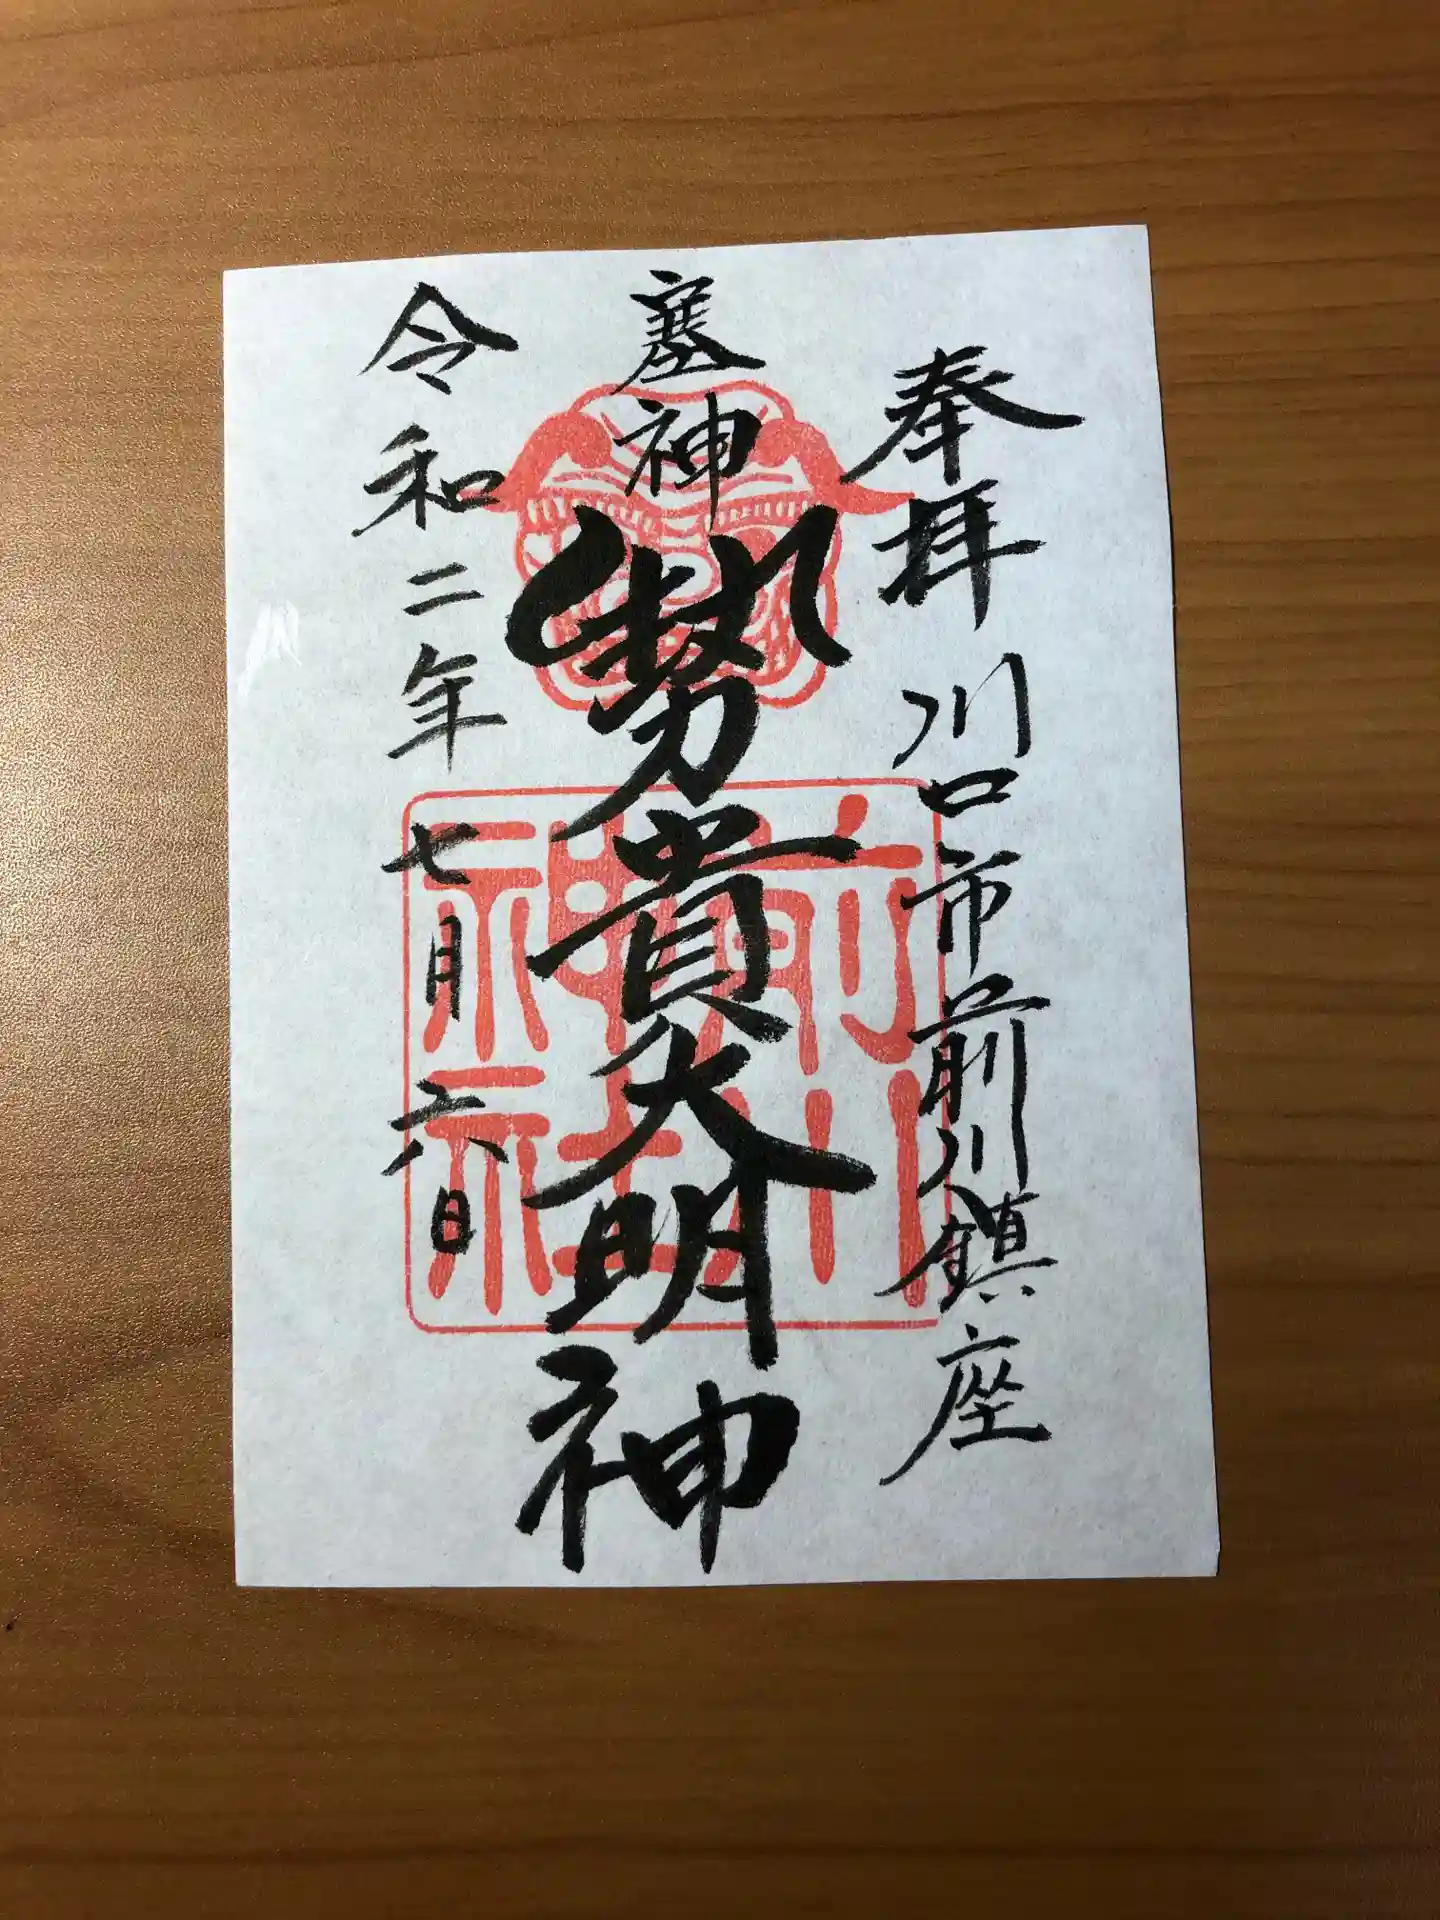 奉拝
川口市前川鎮座
塞神
勢貴大明神
令和二年七月六日
前川
神社